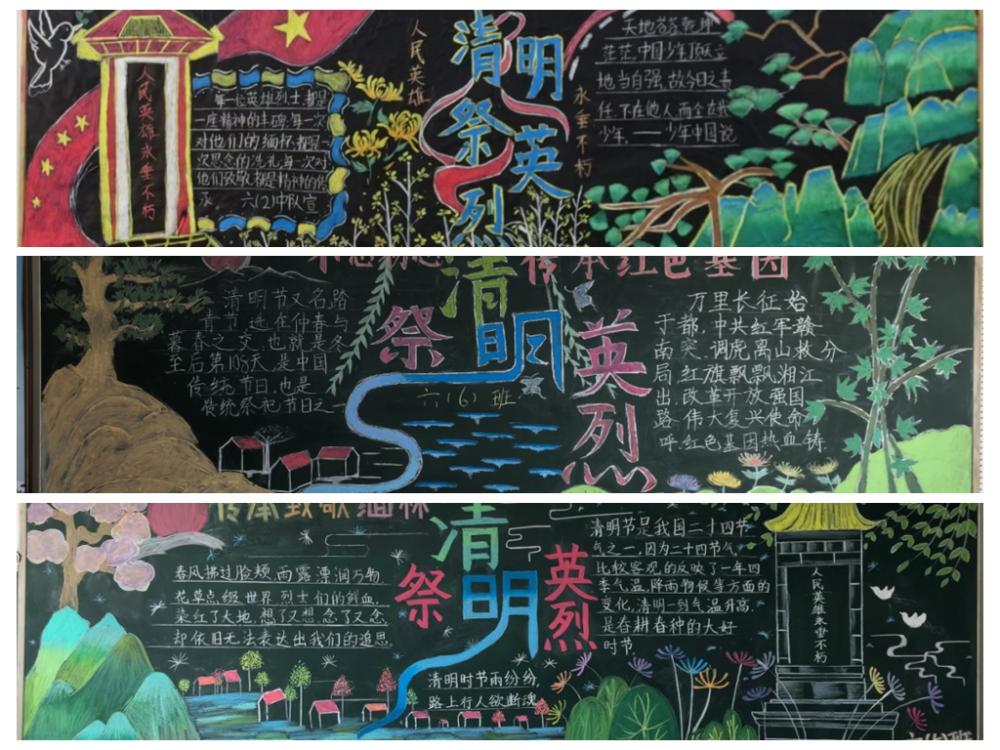 人民英雄永垂不朽
每一位英雄烈士都是
一座精神的丰碑,每一次
对他们的缅怀都是一
次思念的洗礼,每一次对
他们致敬都是精神的传
承. 六(2)中队宣
人民英雄
清明
祭英
烈
永垂不朽
天地苍苍乾坤
茫茫,中国少年顶天立
地当自强,故今日之责
任,不在他人,而全在我
少年. ——少年中国说
传承红色基因
清明节又名踏
青节,选在仲春与
暮春之交,也就是冬
至后第108天,是中国
传统节日,也是
传统祭祀节日之一
清
祭明英
烈
六(6)班
万里长征始
于都,中共红军赣
南突.调虎离山救分
局,红旗飘飘湘江
出.改革开放强国
路.伟大复兴使命
呼.红色基因热血铸.
传承致敬缅怀
春风拂过脸颊,雨露漂润万物,
花草点缀世界.烈士们的鲜血,
染红了大地,想了又想,念了又念,
却依旧无法表达出我们的追思.
清
祭明英
烈
清明时节雨纷纷,
路上行人欲断魂.
清明节是我国二十四节
气之一,因为二十四节气
比较客观的反映了一年四
季气温,降雨物候等方面的
变化,清明一到气温升高,
是春耕春种的大好
时节.
人民英雄永垂不朽